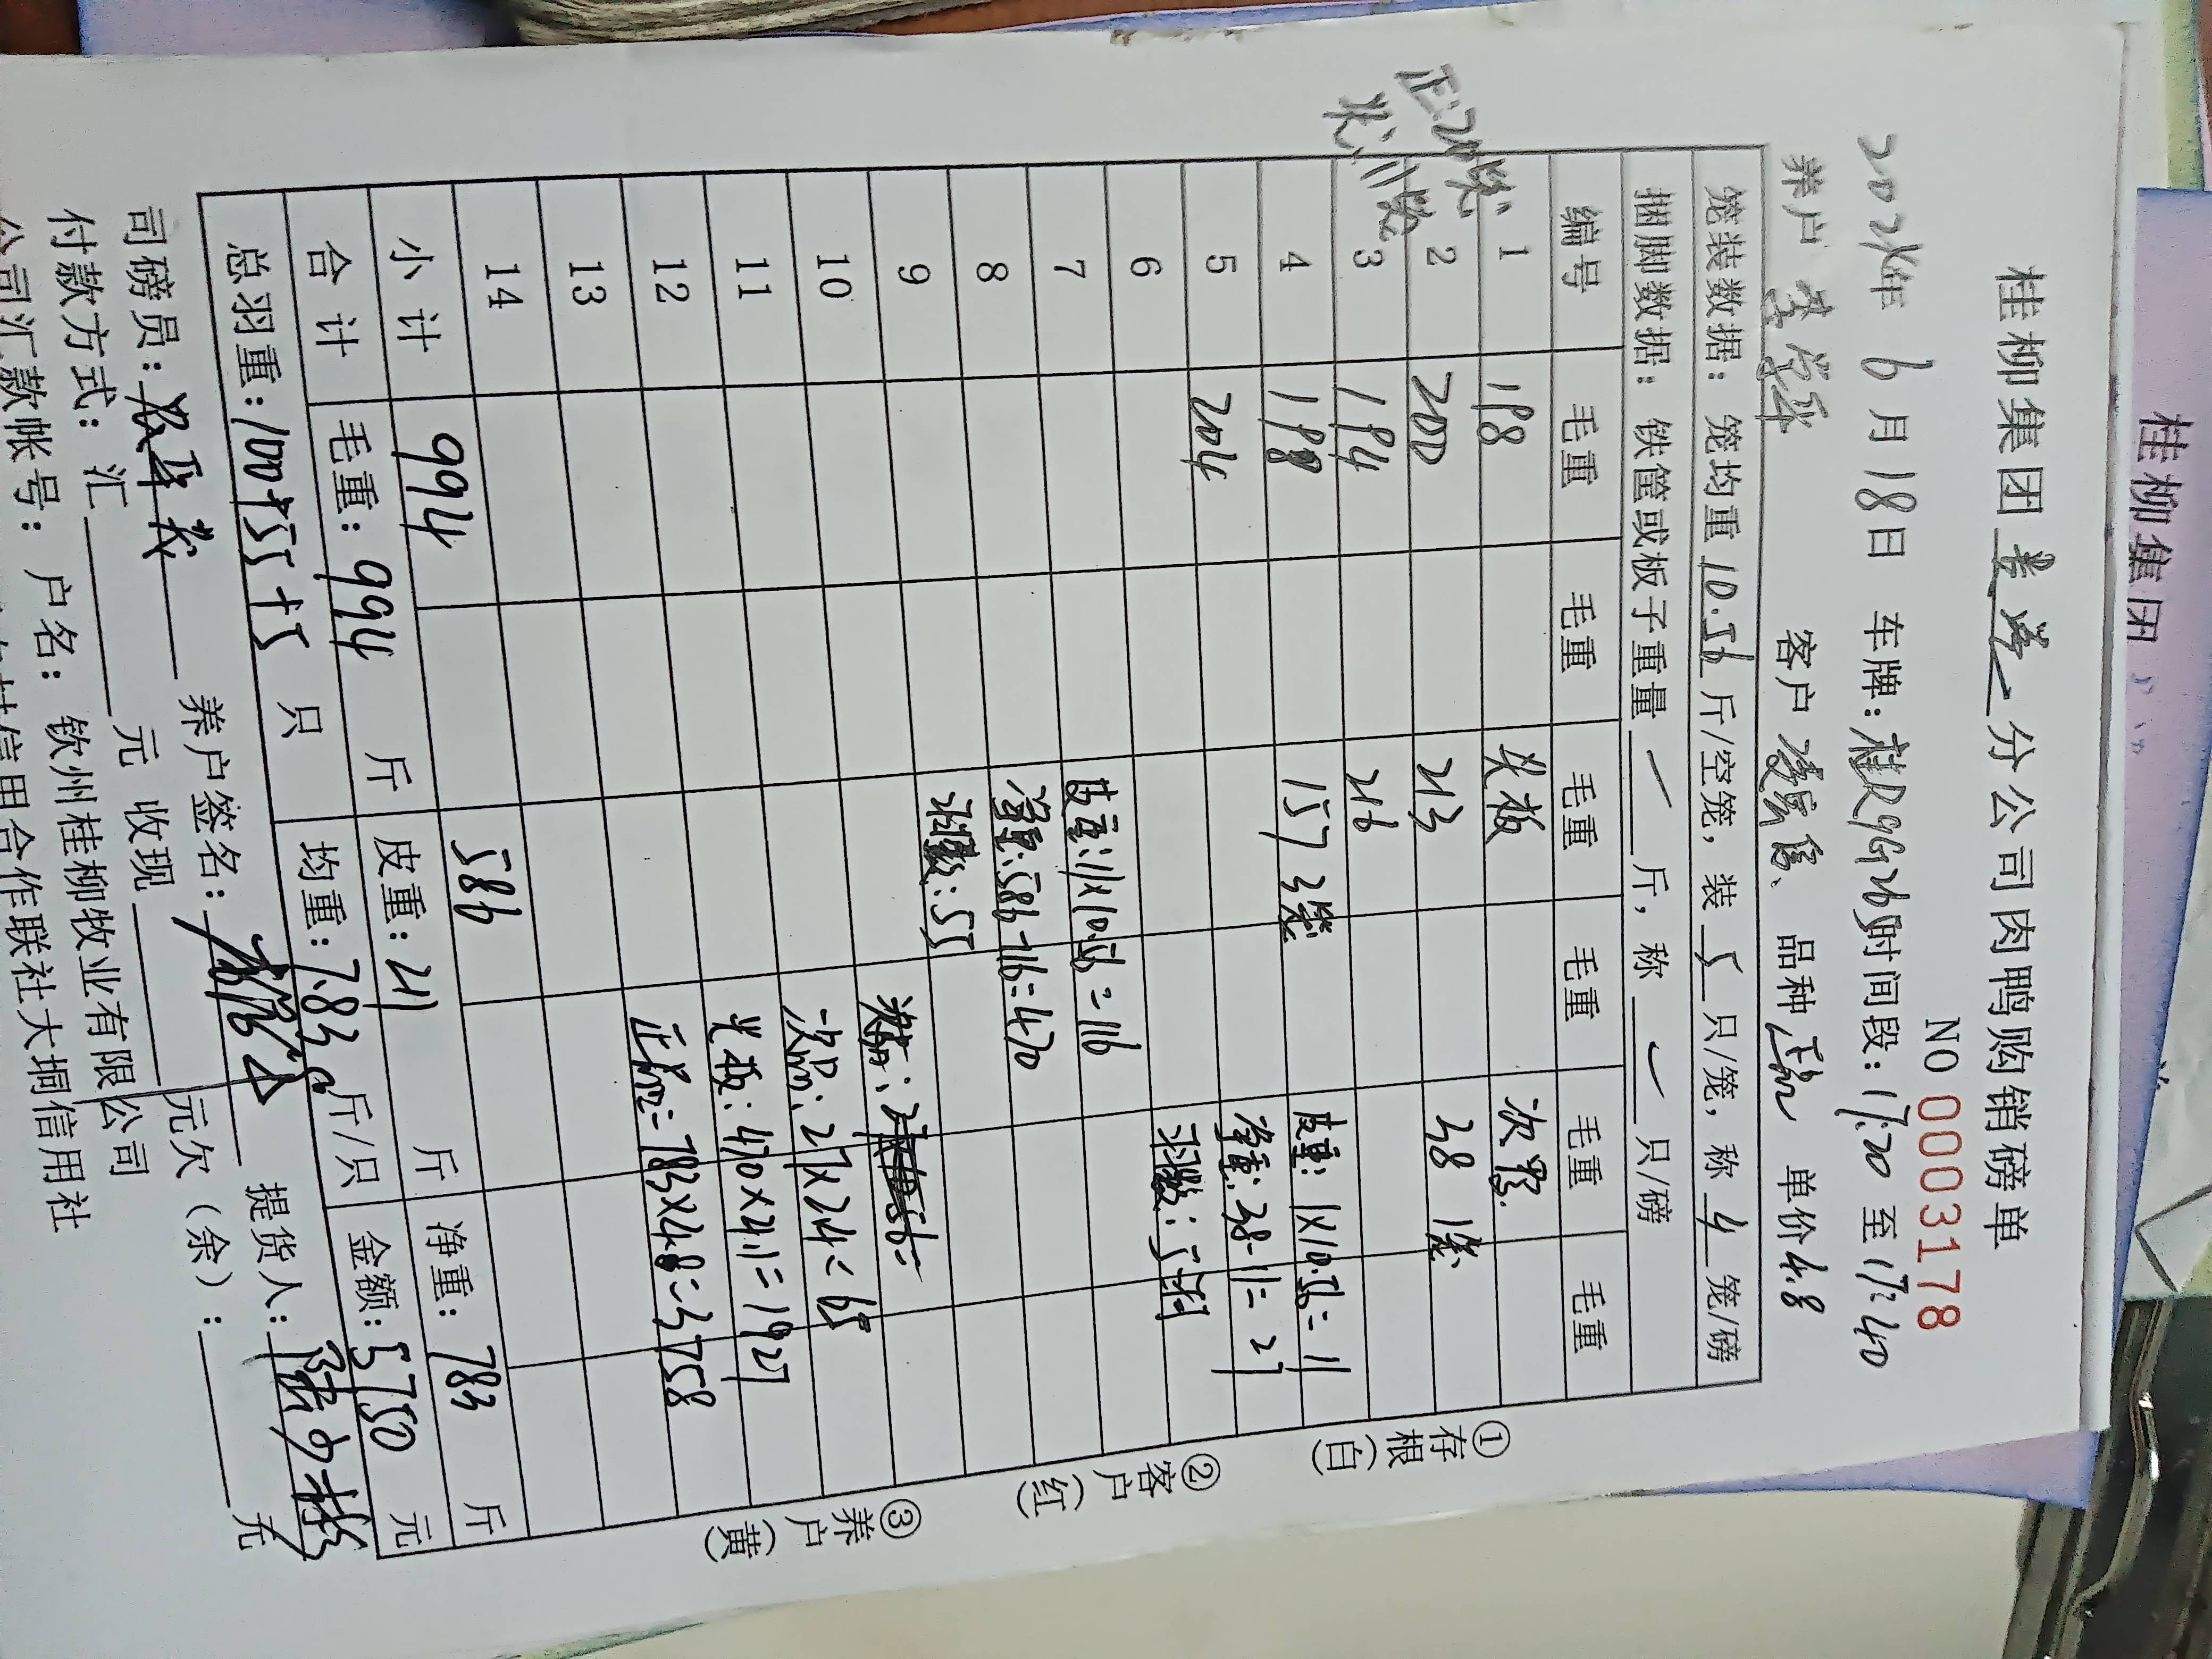 桂柳集团
桂柳集团 分公司肉鸭购销磅单
NO 0003178
2024年 6 月 18 日 车牌: 时间段: 17:20 至 17:40
养户 客户 品种 正品 单价 4.8
笼装数据: 笼均重 10.56 斤/空笼, 装 5 只/笼, 称 4 笼/磅
捆脚数据: 铁筐或板子重量 — 斤, 称 — 只/磅
正:20笼
光:11笼
编号 毛重 毛重 毛重 毛重 毛重 毛重
1 198 光板 次品
2 200 213 38 1笼
3 194 216
4 198 157 3笼 皮重: 1×10.56=11
5 204 净重: 38-11=27
6 羽数: 5羽
7 皮重: 11×10.56=116
8 净重: 586-116=470
9 羽数: 55
10 次品: 27×2.4=65
11 光板: 470×4.1=1927
12 正品: 783×4.8=3758
13
14
小计 994 586
合计 毛重: 994 斤 皮重: 211 斤 净重: 783 斤
总羽重: 100+55+5 只 均重: 7.83 斤/只 金额: 5750 元
司磅员: 养户签名: 提货人:
付款方式: 汇 元 收现 元欠(余): 元
公司汇款帐号: 户名: 钦州桂柳牧业有限公司
信用合作联社大垌信用社
①存根(白)
②客户(红)
③养户(黄)